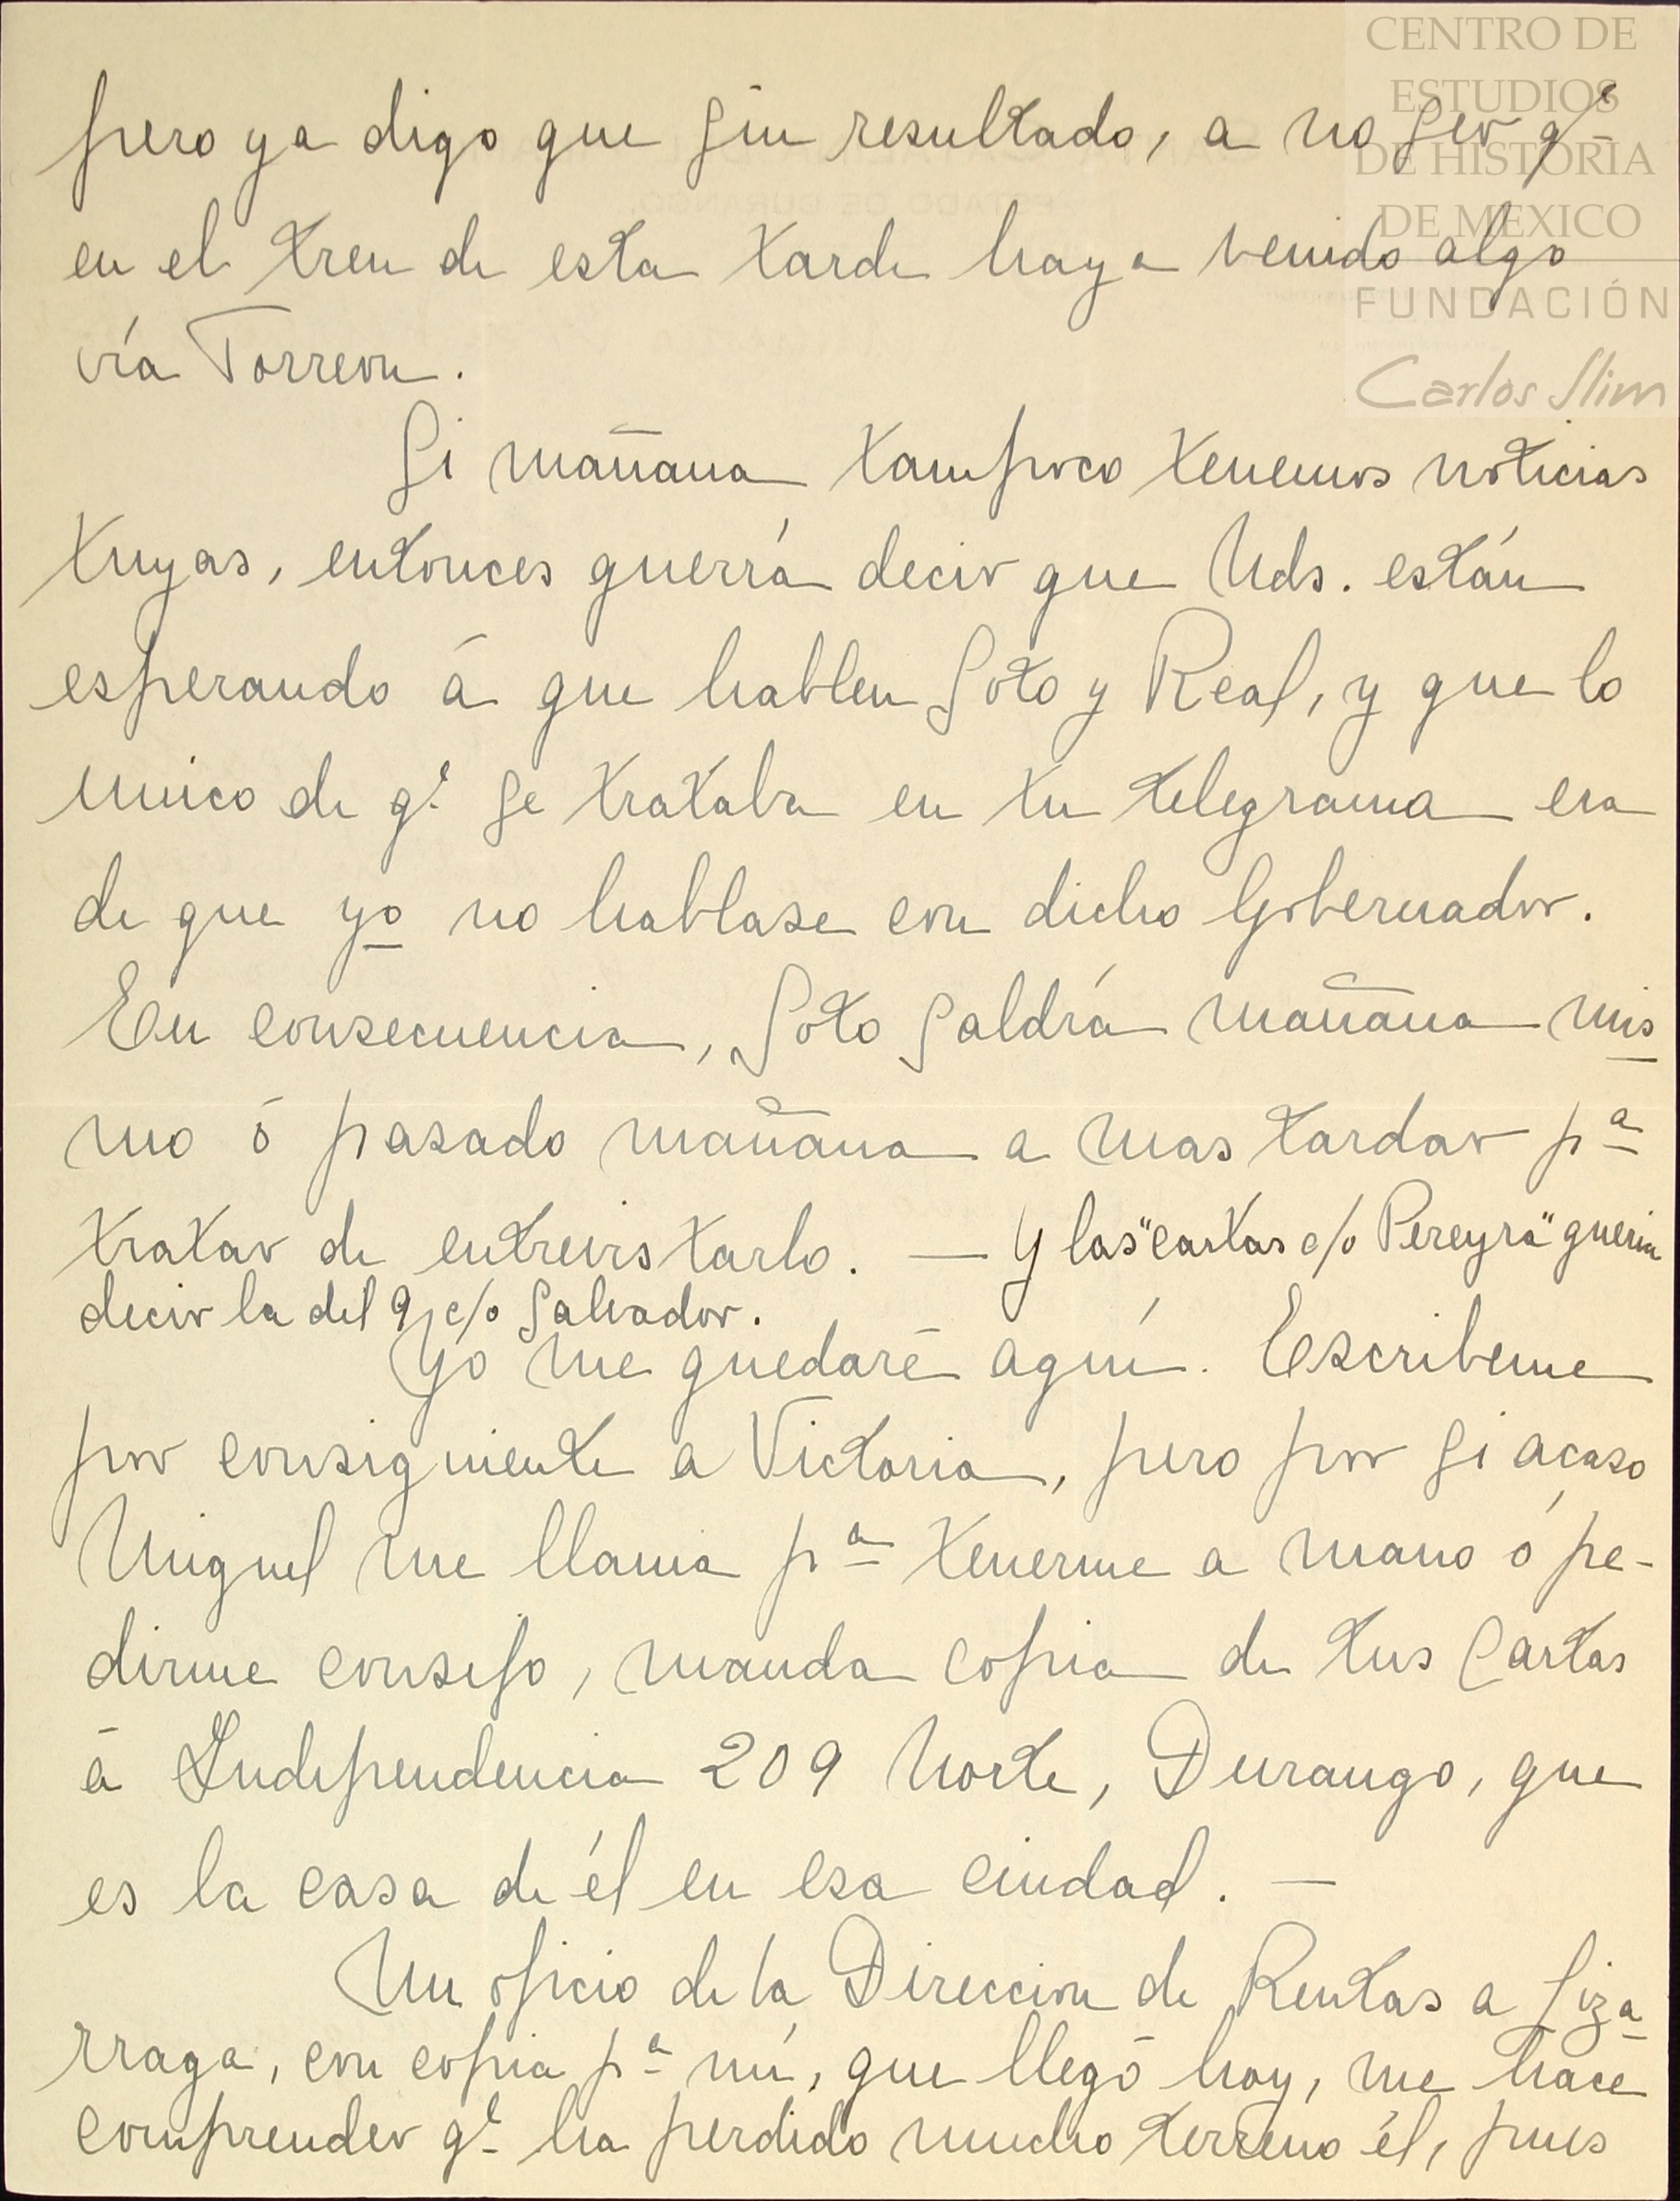 CENTRO DE
ESTUDIOS
DE HISTORIA
DE MEXICO
FUNDACIÓN
Carlos Slim
pero ya digo que sin resultado, a no ser qᵉ
en el tren de esta tarde haya venido algo
vía Torreon.
Si mañana tampoco tenemos noticias
tuyas, entonces querrá decir que Uds. están
esperando á que hablen Soto y Real, y que lo
unico de qᵉ se trataba en tu telegrama era
de que yo no hablase con dicho Gobernador.
En consecuencia, Soto saldrá mañana mis
mo ó pasado mañana a mas tardar pᵃ
tratar de entrevistarlo. — Y las "cartas c/o Pereyra" querian
decir la del 9, c/o Salvador.
Yo me quedaré aquí. Escribeme
por consiguiente a Victoria, pero por si acaso
Miguel me llama pᵃ tenerme a mano ó pe-
dirme consejo, manda copia de tus cartas
á Independencia 209 Norte, Durango, que
es la casa de él en esa ciudad. —
Un oficio de la Direccion de Rentas a Liza
rraga, con copia pᵃ mí, que llegó hoy, me hace
comprender qᵉ ha perdido mucho terreno él, pues